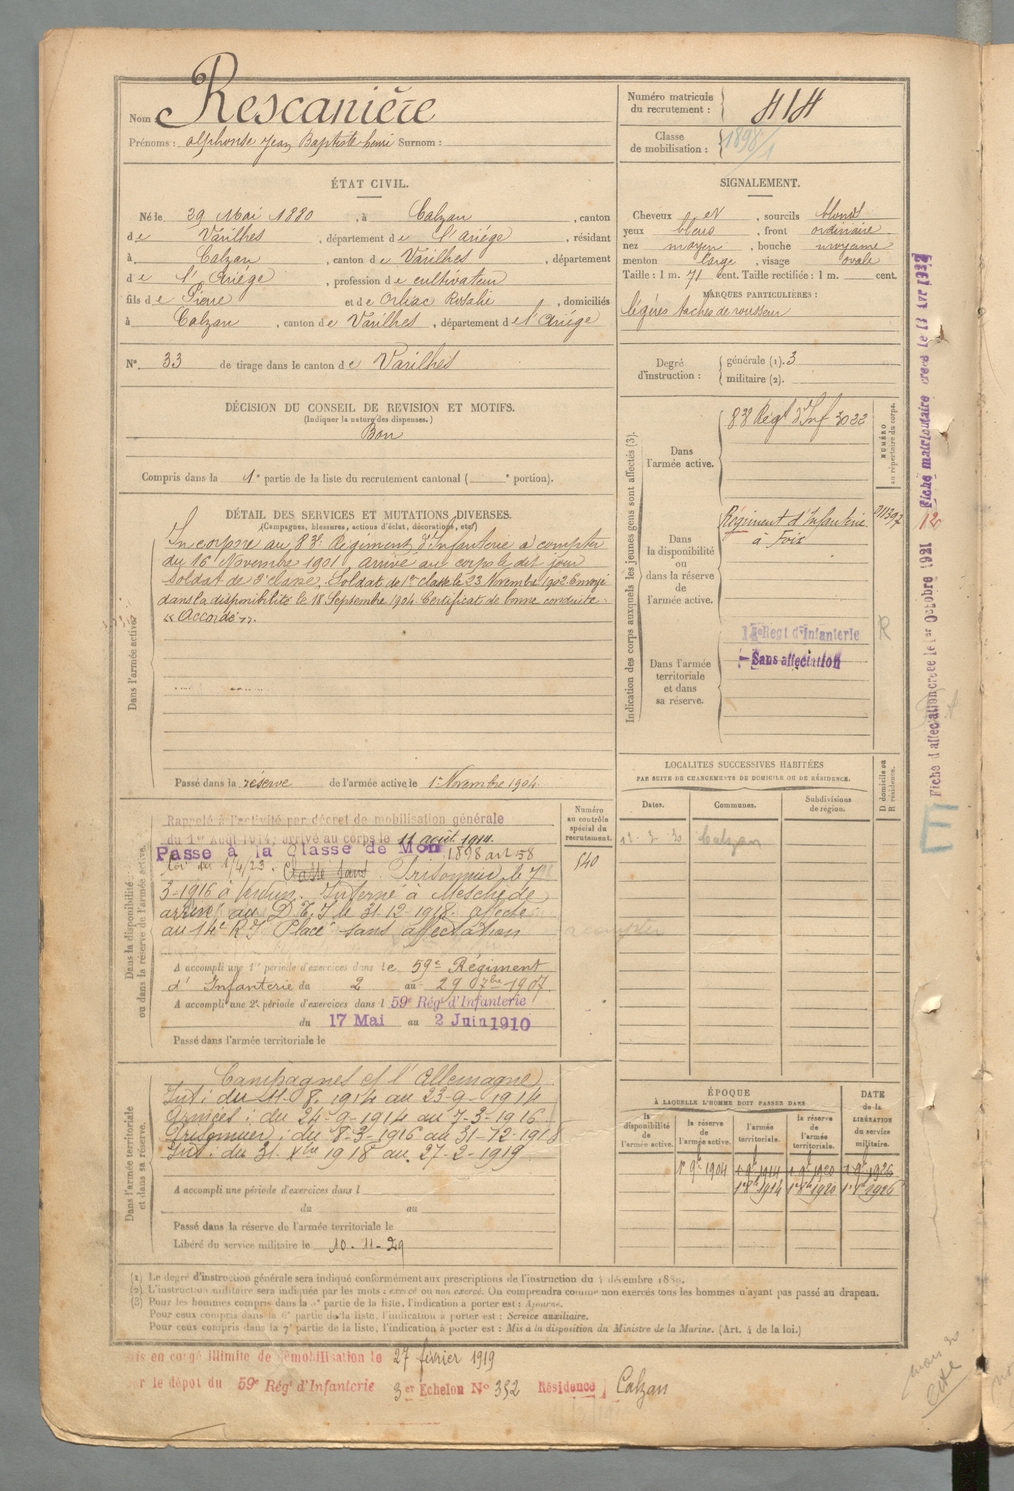 Nom : Rescanière
Prénoms : Alphonse Jean Baptiste henri Surnom :
ÉTAT CIVIL.
Né le 29 Mai 1880, à Calzan, canton
de Varilhes, département de l'Ariége, résidant
à Calzan, canton de Varilhes, département
de l'Ariége, profession de cultivateur
fils de Pierre et de Orliac Rosalie, domiciliés
à Calzan, canton de Varilhes, département de l'Ariége
N° 33 de tirage dans le canton de Varilhes
DÉCISION DU CONSEIL DE REVISION ET MOTIFS.
(Indiquer la nature des dispenses.)
Bon
Compris dans la 1e partie de la liste du recrutement cantonal ( e portion).
Dans l'armée active.
DÉTAIL DES SERVICES ET MUTATIONS DIVERSES.
(Campagnes, blessures, actions d'éclat, décorations, etc.)
Incorpré au 83e Régiment d'Infanterie à compter
du 16 Novembre 1901, arrivé au corps le dit jour
Soldat de 2e classe. Soldat de 1re classe le 23 Novembre 1902 Envoyé
dans la disponibilité le 18 Septembre 1904. Certificat de bonne conduite
"Accordé".
Passé dans la réserve de l'armée active le 1er Novembre 1904
Dans la disponibilité
ou dans la réserve de l'armée active.
Rappelé à l'activité par décret de mobilisation générale
du 1er Août 1914, arrivé au corps le 11 août 1914.
Passé à la Classe de Mon 1898 art 58
Loi du 1/4/23. Classé sans Prisonnier le 7
3-1916 à Verdun. Interné à Meschede
arrivé au D.T.I le 31-12-1918. affecté
au 14e R.I Placé sans affectation
A accompli une 1re période d'exercices dans le 59e Régiment
d'Infanterie du 2 au 29 7bre 1907
A accompli une 2e période d'exercices dans l 59e Rég' d'Infanterie
du 17 Mai au 2 Juin 1910
Passé dans l'armée territoriale le
Numéro
au contrôle
spécial du
recrutement.
540
Dans l'armée territoriale
et dans sa réserve.
Campagnes ct l'Allemagne
Int : du 11-8-1914 au 23-9-1914
Armées : du 24-9-1914 au 7-3-1916
Prisonnier : du 8-3-1916 au 31-12-1918
Int : du 31 Xbre 1918 au 27-2-1919
A accompli une période d'exercices dans l
du au
Passé dans la réserve de l'armée territoriale le
Libéré du service militaire le 10-11-29
Numéro matricule
du recrutement : 414
Classe
de mobilisation : 1898/1
SIGNALEMENT.
Cheveux et, sourcils blond
yeux bleus, front ordinaire
nez moyen, bouche moyenne
menton large, visage ovale
Taille : 1 m. 71 cent. Taille rectifiée : 1 m. cent.
MARQUES PARTICULIÈRES :
légères taches de rousseur
Degré
d'instruction :
générale (1). 3
militaire (2).
Indication des corps auxquels les jeunes gens sont affectés (3).
NUMÉRO
au répertoire du corps.
Dans
l'armée active.
83e Régt d'Inf 3022
Dans
la disponibilité
ou
dans la réserve
de
l'armée active.
Régiment d'Infanterie
à Foix
Dans l'armée
territoriale
et dans
sa réserve.
Régt d'Infanterie
R
Sans affectation
LOCALITES SUCCESSIVES HABITÉES
PAR SUITE DE CHANGEMENTS DE DOMICILE OU DE RÉSIDENCE.
Dates.
Communes.
Subdivisions
de région.
D domicile ou
R résidence.
Calzan
ÉPOQUE
À LAQUELLE L'HOMME DOIT PASSER DANS
la
disponibilité
de
l'armée active.
la réserve
de
l'armée active.
l'armée
territoriale.
la réserve
de
l'armée
territoriale.
DATE
de la
LIBÉRATION
du service
militaire.
1er 9bre 1904 1er 9bre 1914 1er 9bre 1920 1er 9bre 1926
1er 8bre 1914 1er 8bre 1920 1er 8bre 1926
Fiche d'affectation créée le 1er Octobre 1921
Fiche matriculaire créée le 13 Avr
E
(1) Le degré d'instruction générale sera indiqué conformément aux prescriptions de l'instruction du 4 décembre 1889.
(2) L'instruction militaire sera indiquée par les mots : exercé ou non exercé. On comprendra comme non exercés tous les hommes n'ayant pas passé au drapeau.
(3) Pour les hommes compris dans la 5e partie de la liste, l'indication à porter est : Ajourné.
Pour ceux compris dans la 6e partie de la liste, l'indication à porter est : Service auxiliaire.
Pour ceux compris dans la 7e partie de la liste, l'indication à porter est : Mis à la disposition du Ministre de la Marine. (Art. 4 de la loi.)
is en congé illimité de démobilisation le 27 février 1919
r le dépôt du 59e Rég' d'Infanterie 3er Échelon N° 352 Résidence Calzan